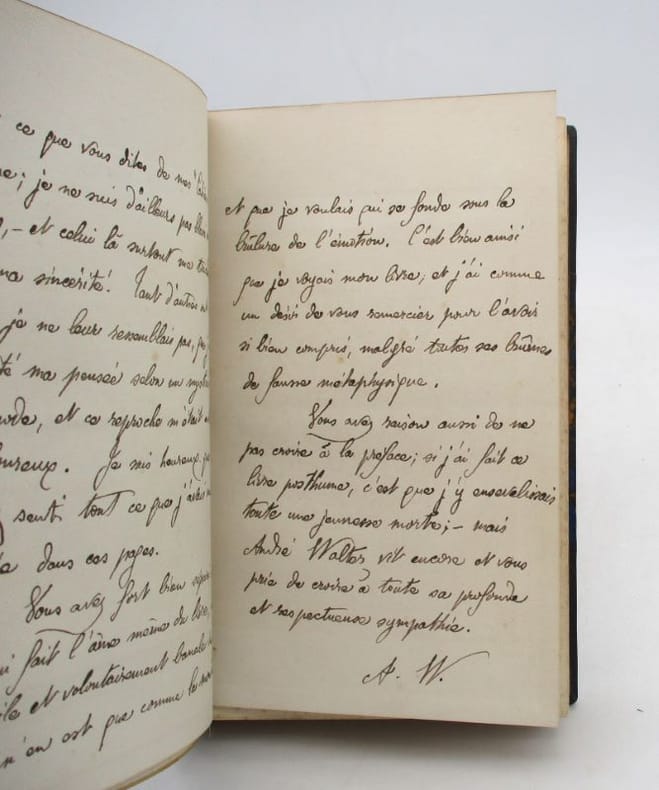 ce que vous dites de mes
; je ne suis d'ailleurs pas
– et celui là surtout me
ma sincérité! Tant d'autres
je ne leur ressemblais pas,
ma pensée selon un
et ce reproche m'était
Je suis heureux
senti tout ce que j'avais
dans ces pages.
Vous avez fort bien
fait l'âme même du livre
et volontairement banale
n'en est que comme le
et que je voulais qui se fonde sous la
brûlure de l'émotion. C'est bien ainsi
que je voyais mon livre; et j'ai comme
un désir de vous remercier pour l'avoir
si bien compris, malgré toutes ses brumes
de fausse métaphysique.
Vous avez raison aussi de ne
pas croire à la préface; si j'ai fait ce
livre posthume, c'est que j'y ensevelissais
toute une jeunesse morte; – mais
André Walter vit encore et vous
prie de croire à toute sa profonde
et respectueuse sympathie.
A. W.